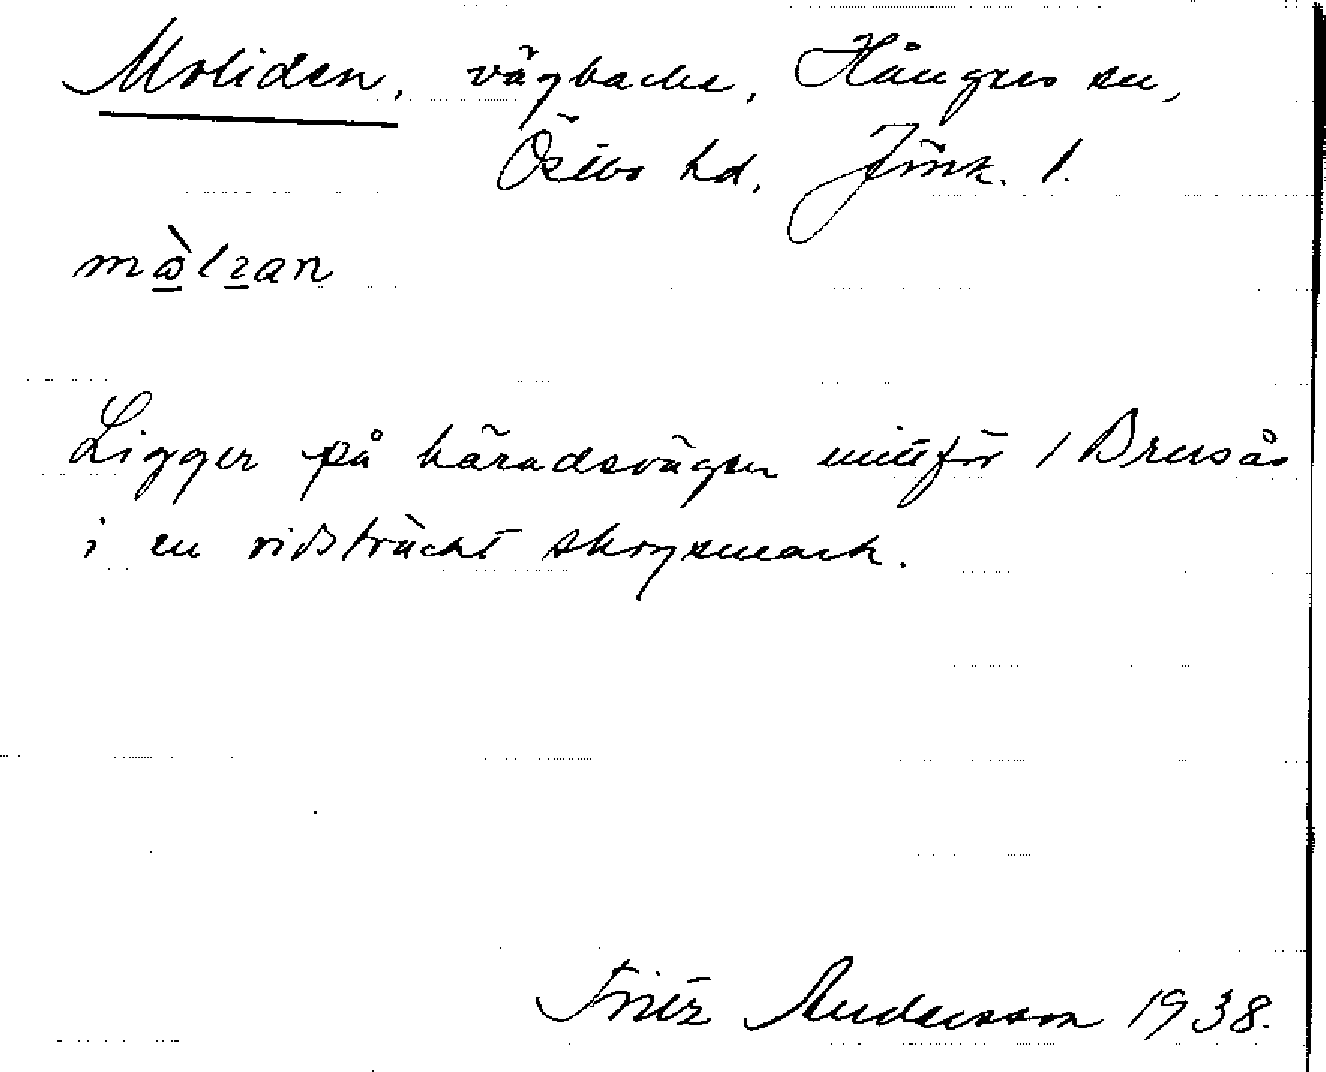 Moliden, vägbacke, Hångers sn,
Östbo hd, Jönk. l.
Ligger på häradsvägen mittför / Brusås
i en vidsträckt skogsmark.
Fritz Andersson 1938.